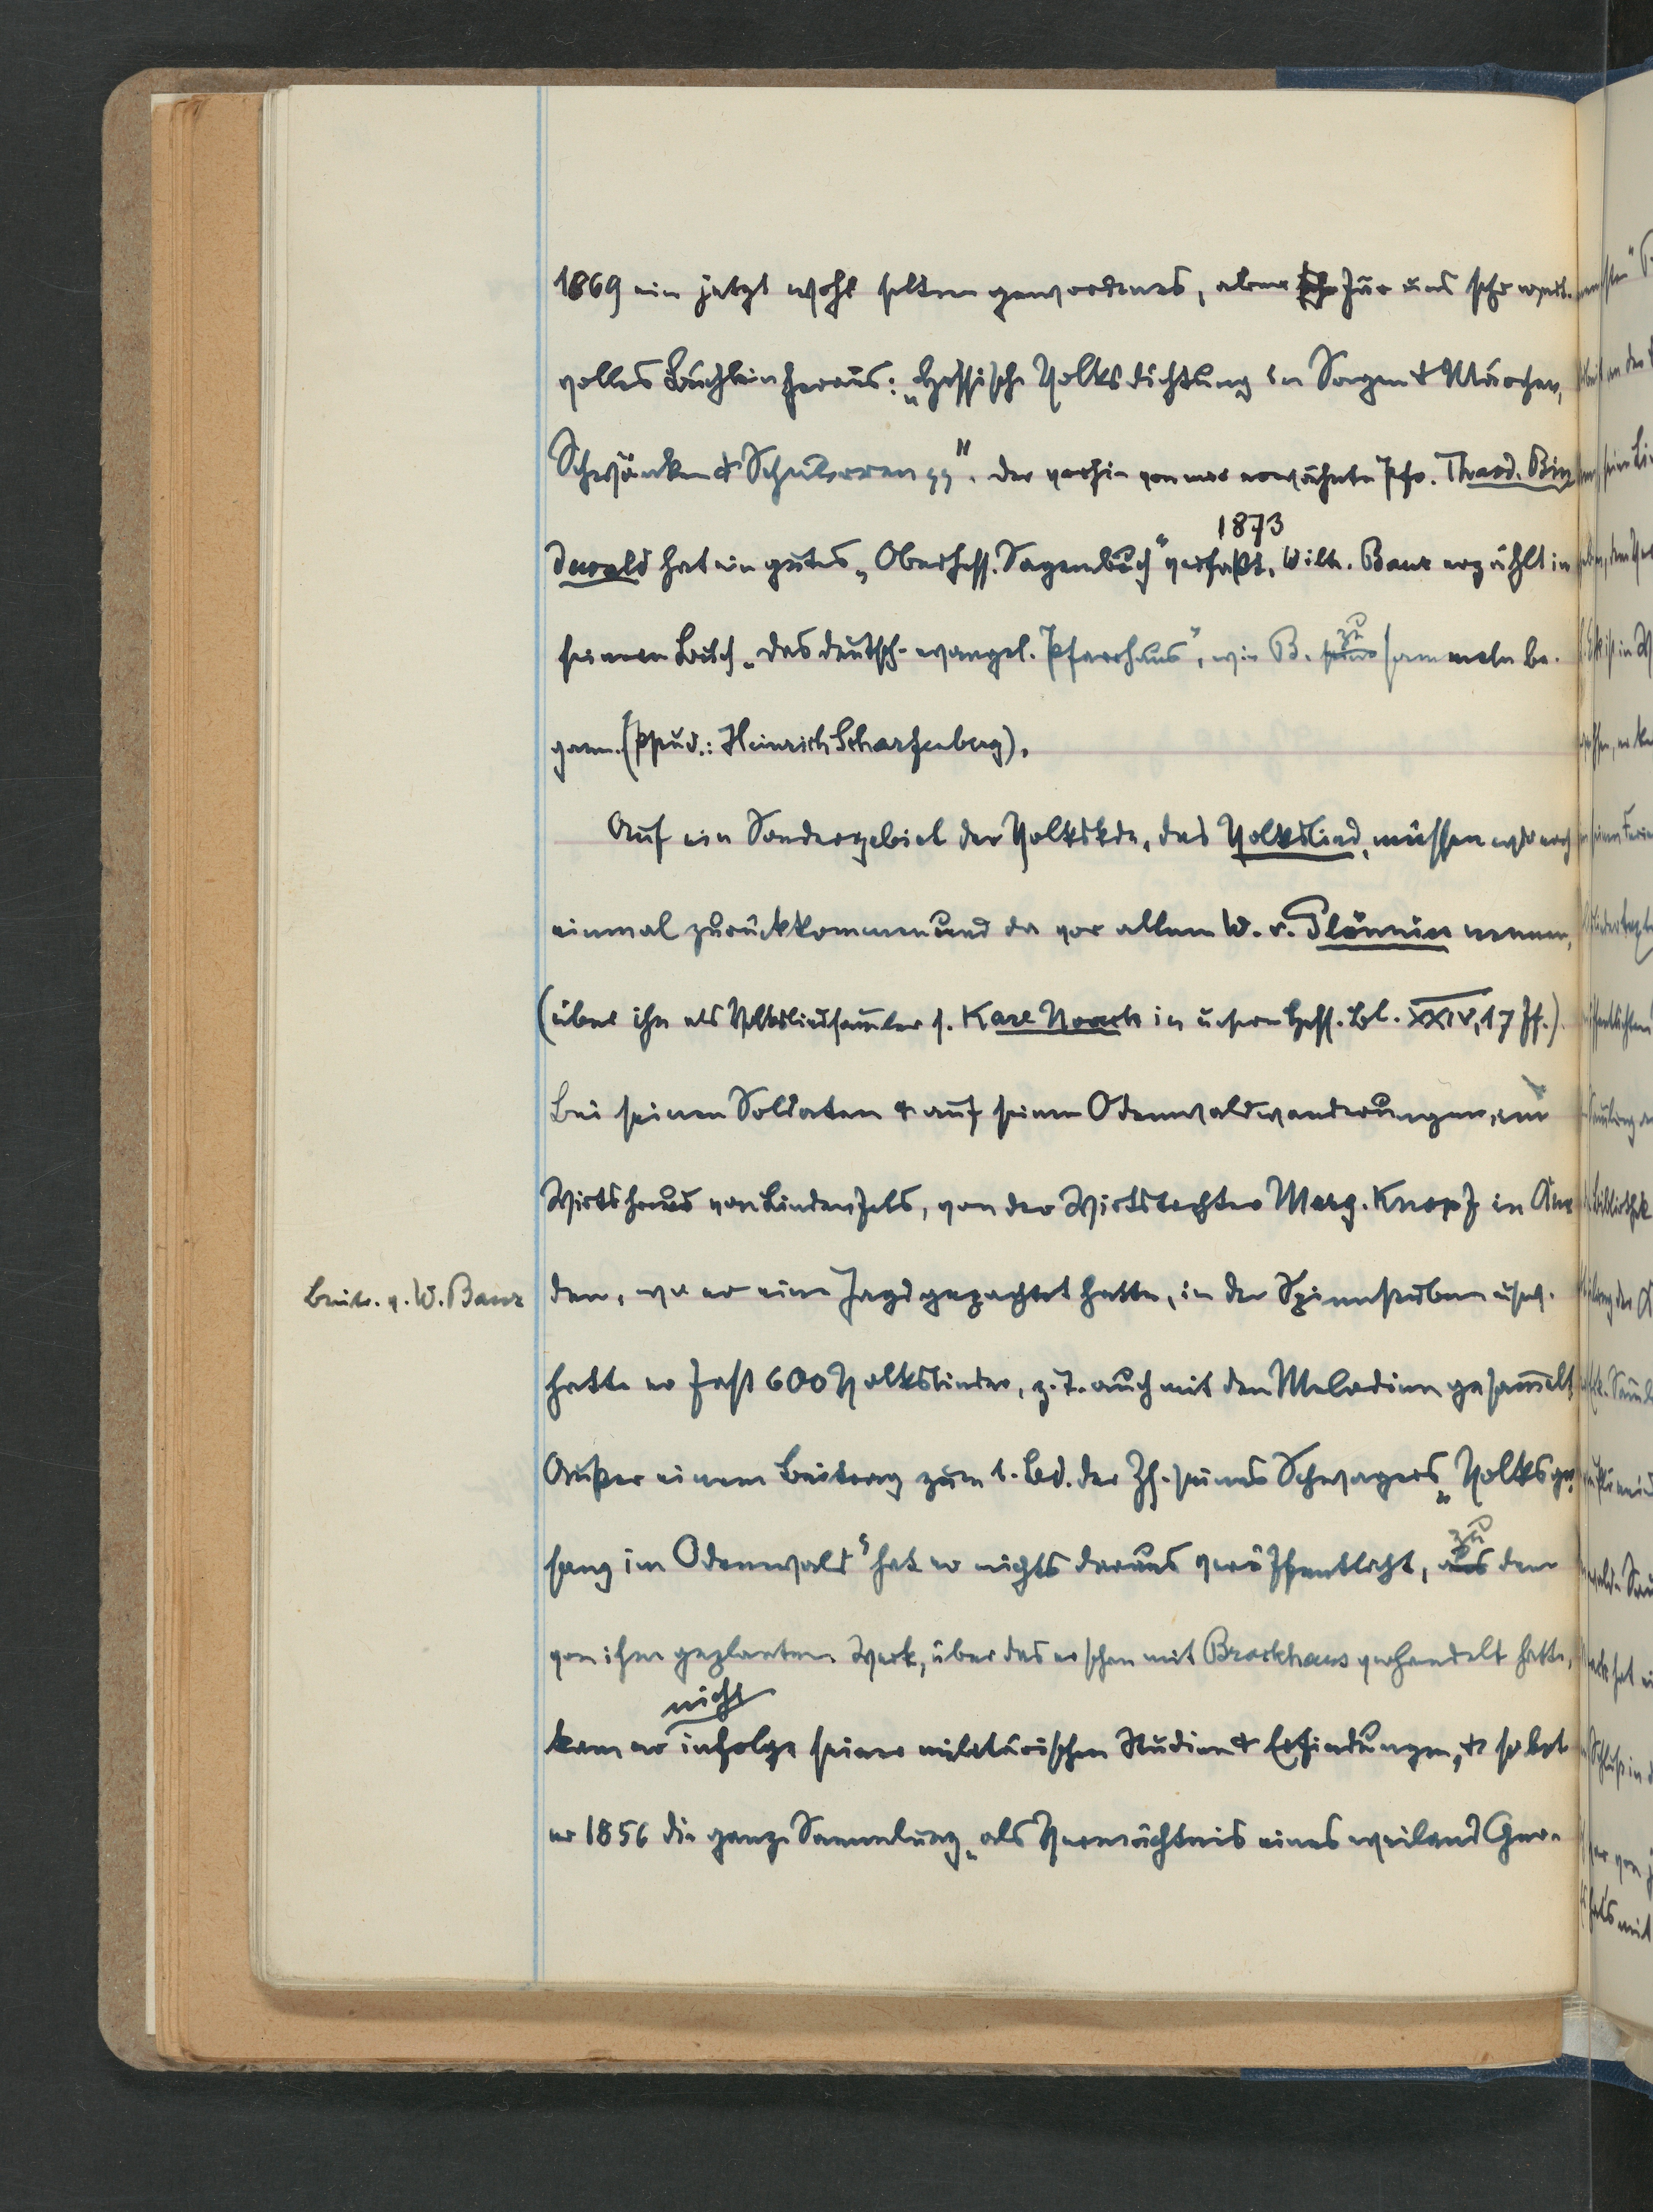 1869 ein jetzt wohl selten gewordenes, aber für uns sehr wert-
volles Büchlein heraus: „Hessische Volksdichtung in Sagen & Märchen,
Schwänken & Schnurren pp". Der vorhin von mir erwähnte Pfr. Theod. Bin
1873
dewald hat ein gutes „Oberhess. Sagenbuch" verfaßt. Wilh. Baur erzählt in
zu
seinem Buch „Das deutsch-evangel. Pfarrhaus", wie B. sammeln be-
gann. (Pseud.: Heinrich Scharfenberg).
Auf ein Sondergebiet der Volkskde, das Volkslied, müssen wir noch
einmal zurückkommen und da vor allem W. v. Plönnies nennen,
(über ihn als Volksliedsammler s. Karl Noack in unsern Hess. Bl. XXIV, 17 ff.).
Bei seinen Soldaten & auf seinen Odenwaldwanderungen, im
Wirtshaus von Lindenfels, von der Wirtstochter Marg. Knopf in
Beitr. v. W. Baur
den, wo er eine Jagd gepachtet hatte, in den Spinnstuben usw.
hatte er fast 600 Volkslieder, z. T. auch mit den Melodien gesammelt
Außer einem Beitrag zum 1. Bd. der Zs. seines Schwagers „Volksge-
zu
sang im Odenwald" hat er nichts daraus veröffentlicht, aus dem
von ihm geplanten Werk, über das er schon mit Brockhaus verhandelt hatte,
nicht
kam er infolge seiner militärischen Studien & Erfindungen, & so bot
er 1856 die ganze Sammlung „als Vermächtnis eines weiland Ger-